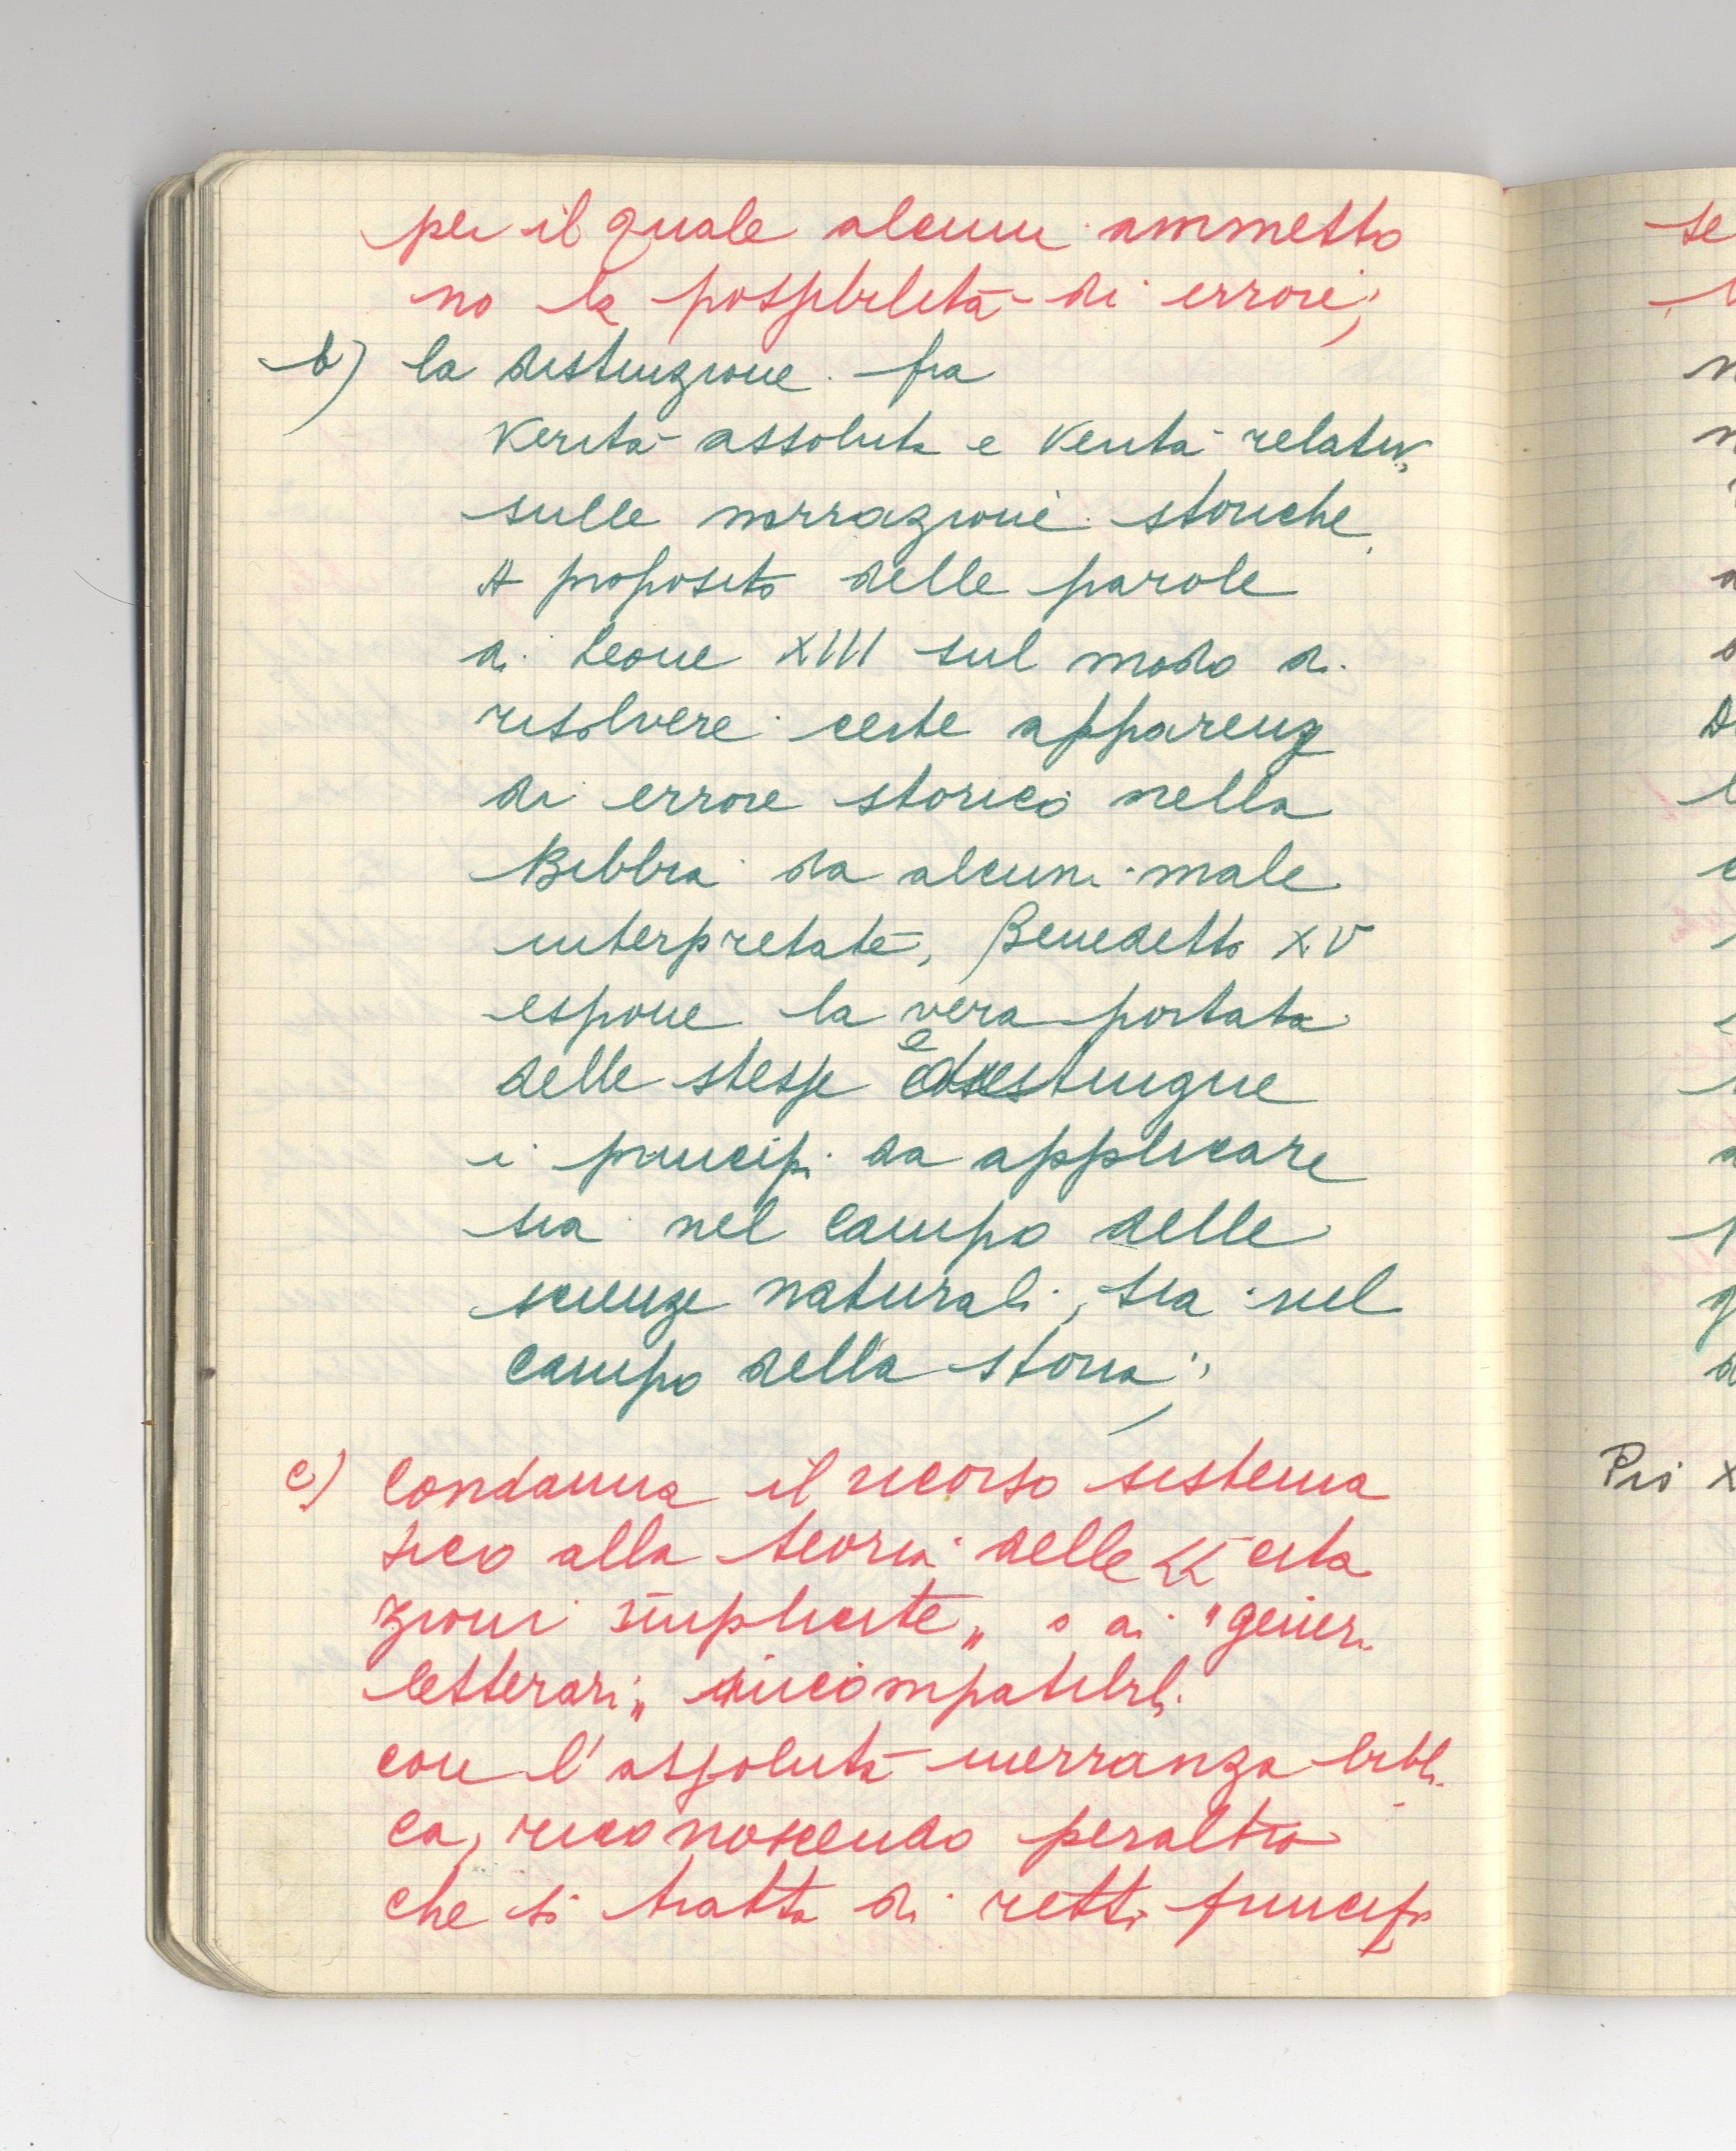 per il quale alcuni ammetto
no la possibilità di errore;
b) la distinzione fra
verità assoluta e verità relativa
sulle narrazioni storiche.
A proposito delle parole
di Leone XIII sul modo di
risolvere certe apparenze
di errore storico nella
Bibbia da alcuni male
interpretate, Benedetto XV
espone la vera portata
delle stesse e distingue
i principi da applicare
sia nel campo delle
scienze naturali, sia nel
campo della storia;
c) Condanna il ricorso sistema
tico alla teoria delle << cita
zioni implicite „ o ai "generi
letterari„ incompatibili
con l'assoluta inerranza bibli
ca, riconoscendo peraltro
che si tratta di retti principi
te
Pio X